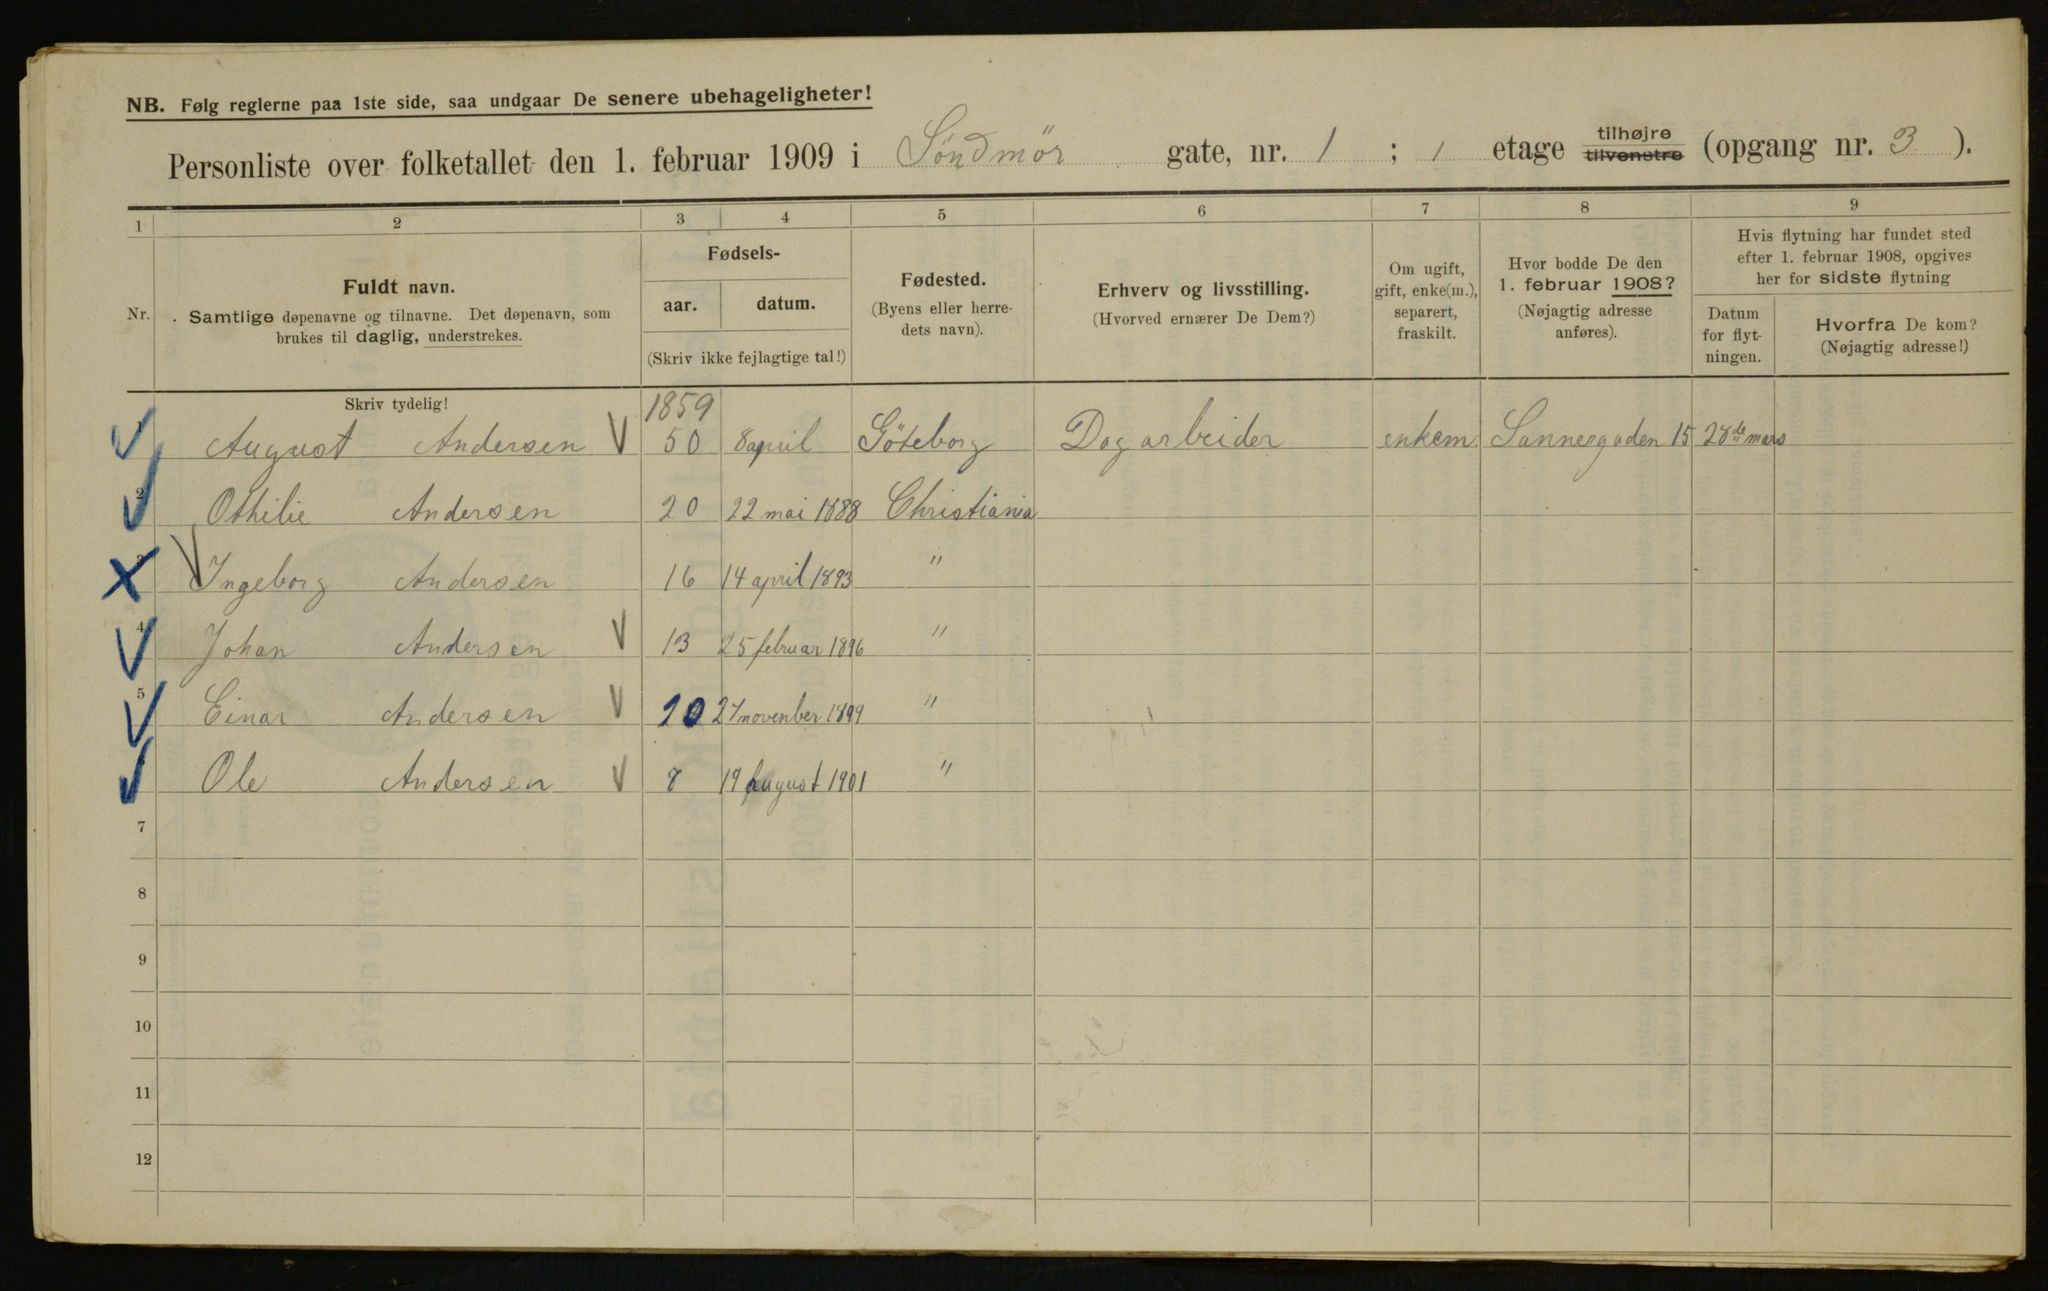 NB. Følg reglerne paa 1ste side, saa undgaar De senere ubehageligheter!
Personliste over folketallet den 1. februar 1909 i Söndmör gate, nr. 1 ; 1 etage tilhøjre tilvenstre (opgang nr. 3 ).
1 2 3 4 5 6 7 8 9
Nr.
Fuldt navn.
Samtlige døpenavne og tilnavne. Det døpenavn, som
brukes til daglig, understrekes.
Skriv tydelig!
Fødsels-
aar. datum.
(Skriv ikke fejlagtige tal!)
Fødested.
(Byens eller herre-
dets navn).
Erhverv og livsstilling.
(Hvorved ernærer De Dem?)
Om ugift,
gift, enke(m.),
separert,
fraskilt.
Hvor bodde De den
1. februar 1908?
(Nøjagtig adresse
anføres).
Hvis flytning har fundet sted
efter 1. februar 1908, opgives
her for sidste flytning
Datum
for flyt-
ningen.
Hvorfra De kom?
(Nøjagtig adresse!)
1859
1 August Andersen 50 8 april Göteborg Dagarbeider enkem. Sannergaden 15 28de mars
2 Othilie Andersen 20 22 mai 1888 Christiania
3 Ingeborg Andersen 16 14 april 1893 "
4 Johan Andersen 13 25 februar 1896 "
5 Einar Andersen 10 27 november 1899 "
Ole Andersen 8 19 august 1901 "
7
8
9
10
11
12